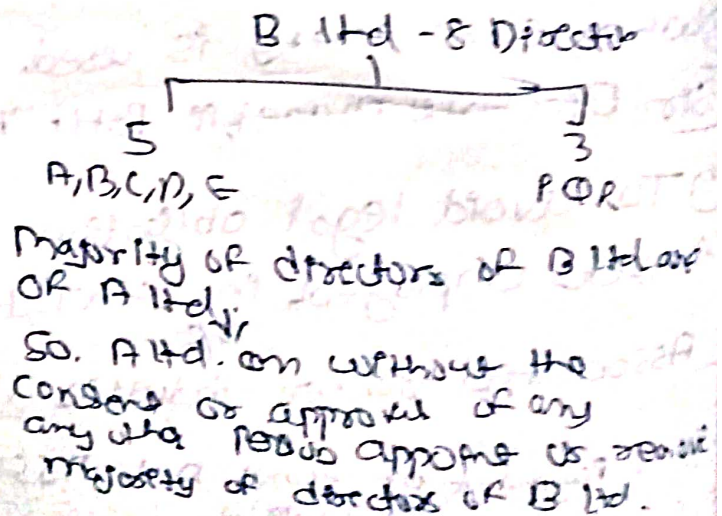 B. ltd - 8 Director
5 3
A, B, C, D, E P Q R
Majority of directors of B ltd are
of A ltd
So. A ltd. can without the
consent or approval of any
any the person appoint or remove
majority of directors of B ltd.